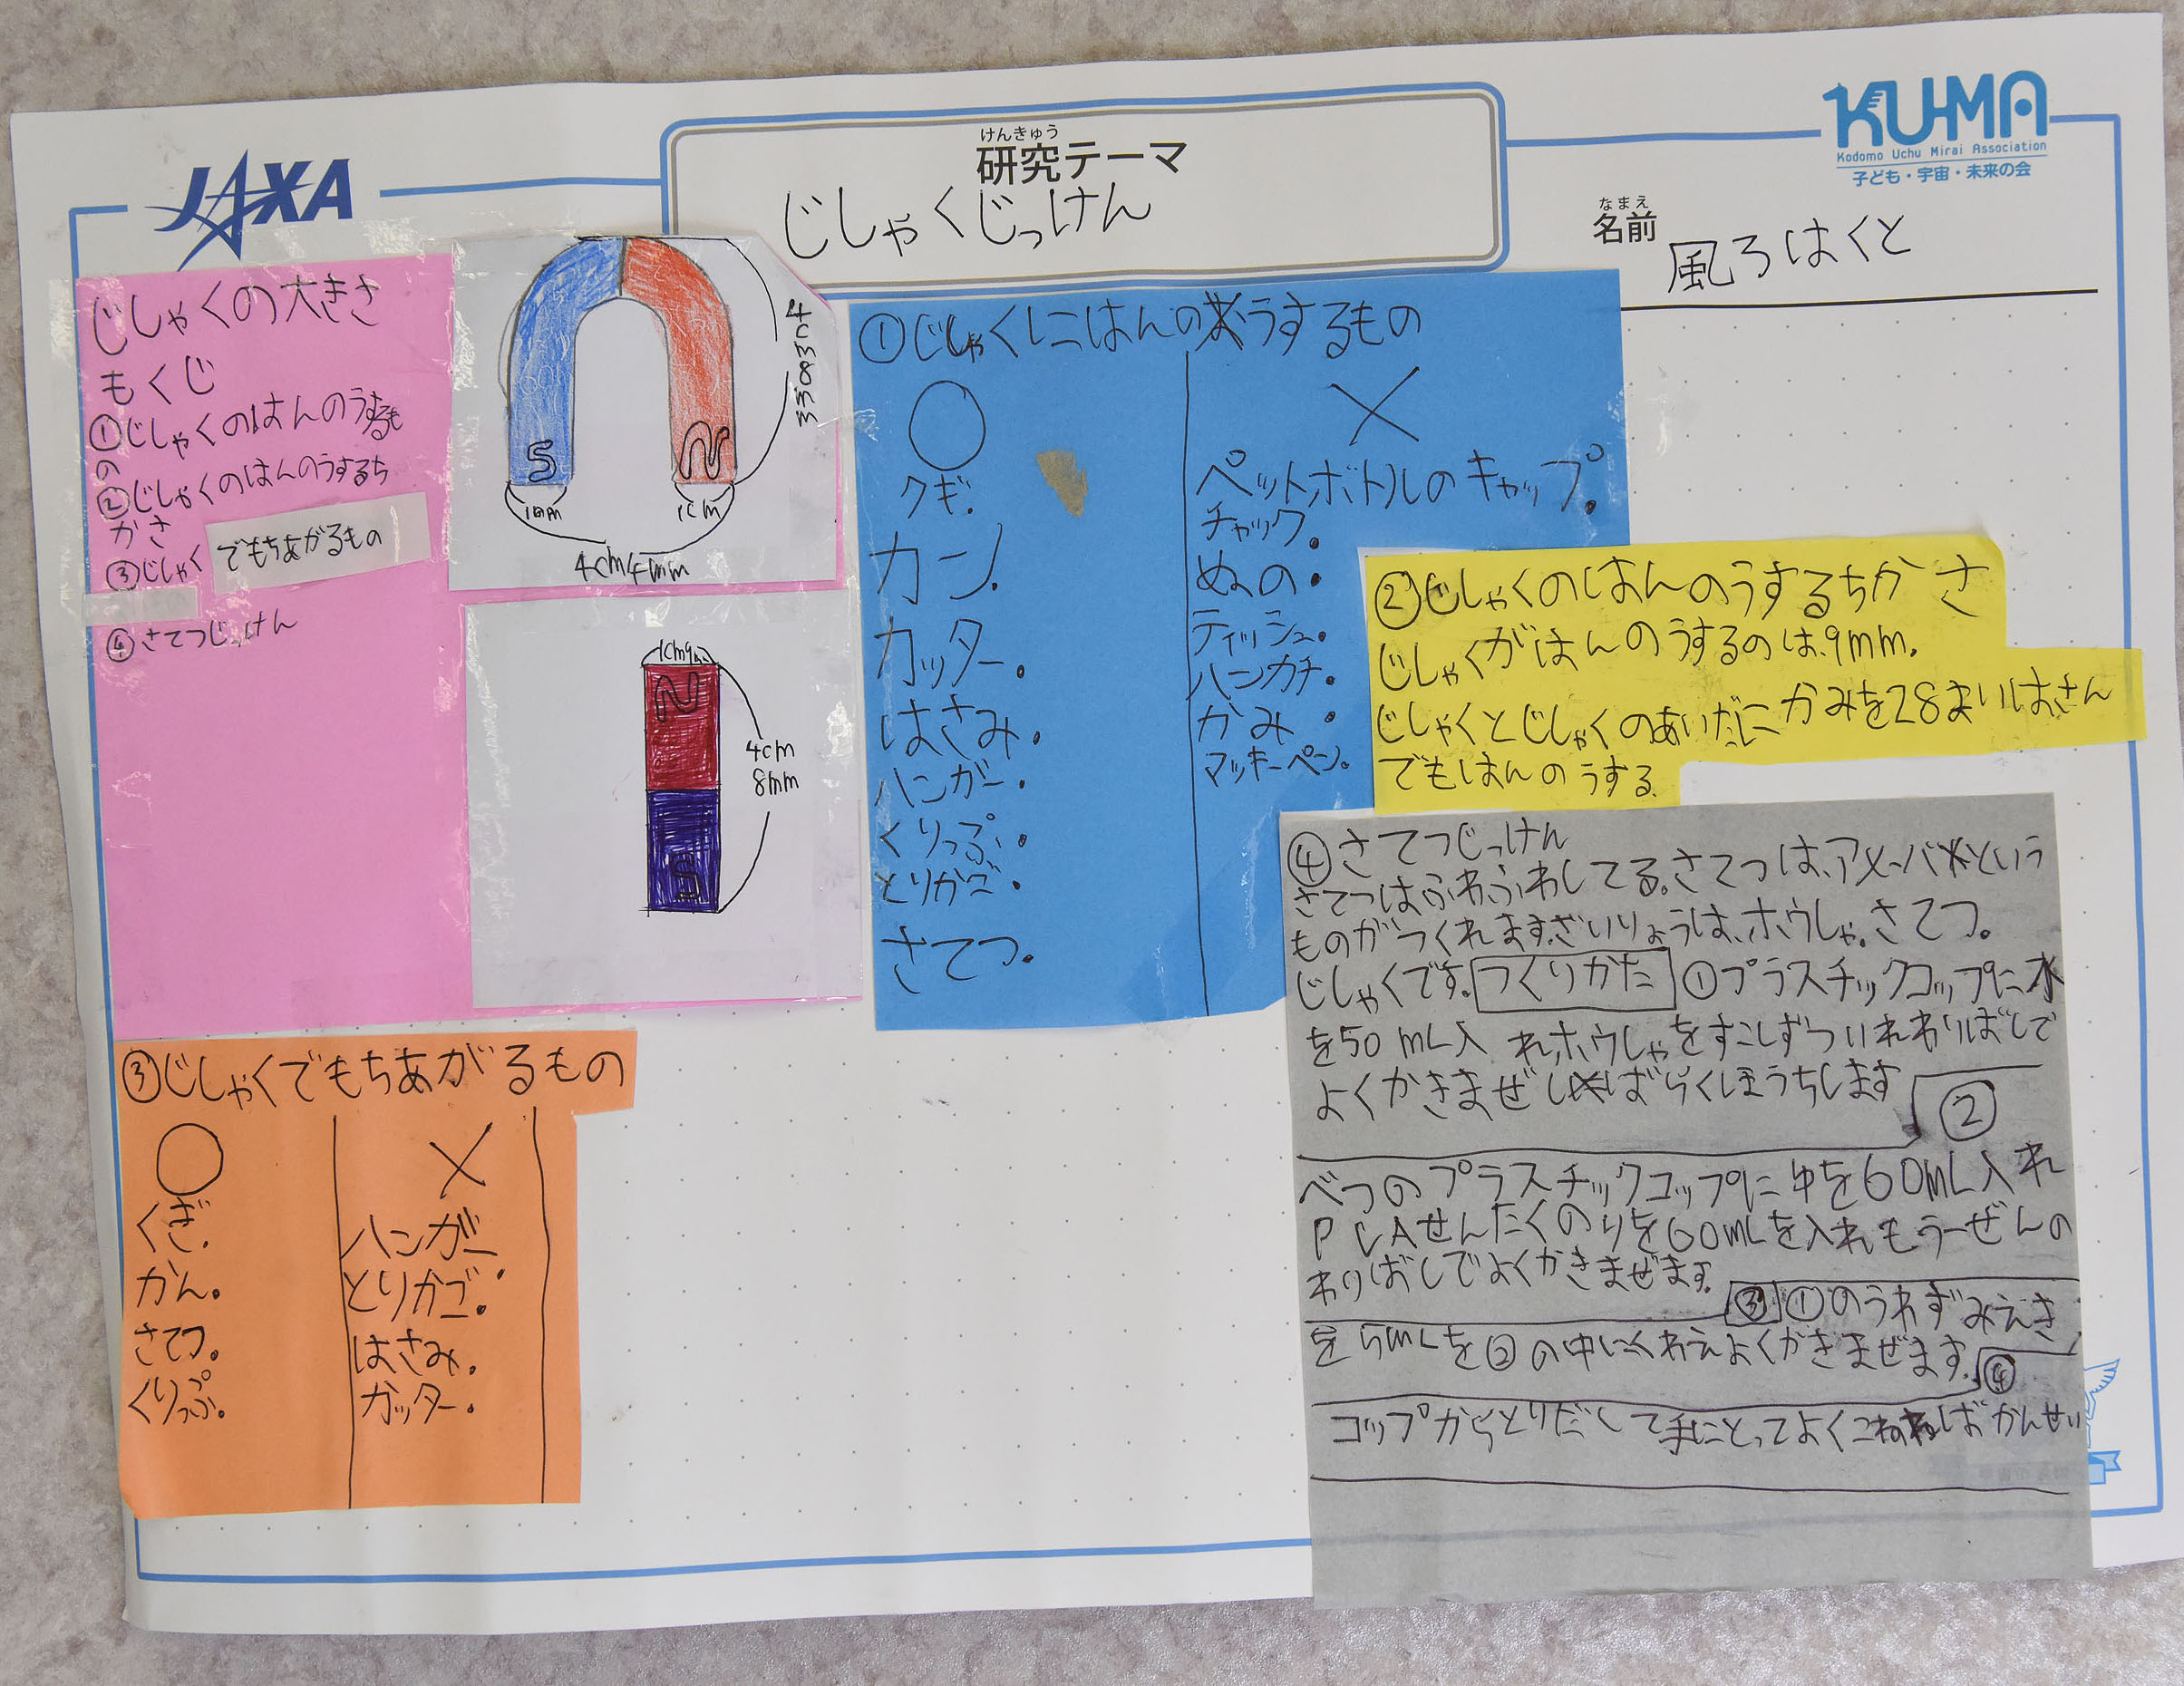 JAXA
けんきゅう
研究テーマ
じしゃくじっけん
KU-MA
Kodomo Uchu Mirai Association
子ども・宇宙・未来の会
なまえ
名前
風ろはくと
じしゃくの大きさ
もくじ
①じしゃくのはんのうするも
の
②じしゃくのはんのうするち
かさ
③じしゃくでもちあがるもの
④さてつじっけん
S
N
4cm8mm
1cm
4cm4mm
1cm9mm
N
4cm
8mm
S
①じしゃくにはんのうするもの
○
クギ.
カン.
カッター.
はさみ.
ハンガー.
くりっぷ.
とりかご.
さてつ.
×
ペットボトルのキャップ.
チャック.
ぬの.
ティッシュ.
ハンカチ.
かみ.
マッキーペン.
②じしゃくのはんのうするちかさ
じしゃくがはんのうするのは、9mm.
じしゃくとじしゃくのあいだにかみを28まいはさん
でもはんのうする.
③じしゃくでもちあがるもの
○
くぎ.
かん.
さてつ.
くりっぷ.
×
ハンガー
とりかご.
はさみ.
カッター.
④さてつじっけん
さてつはふわふわしてる。さてつは、アメーバという
ものがつくれます。ざいりょうは、ホウしゃ。さてつ。
じしゃくです。つくりかた ①プラスチックコップに水
を50mL入れ、ホウしゃをすこしずついれわりばしで
よくかきまぜしばらくほうちします
②
べつのプラスチックコップに中を60mL入れ
PLAせんたくのりを60mLを入れもう一ぜんの
わりばしでよくかきまぜます。
③ ①のうわずみえき
を5mLを②の中にくわえよくかきまぜます。④
コップからとりだして手にとってよくこねればかんせい